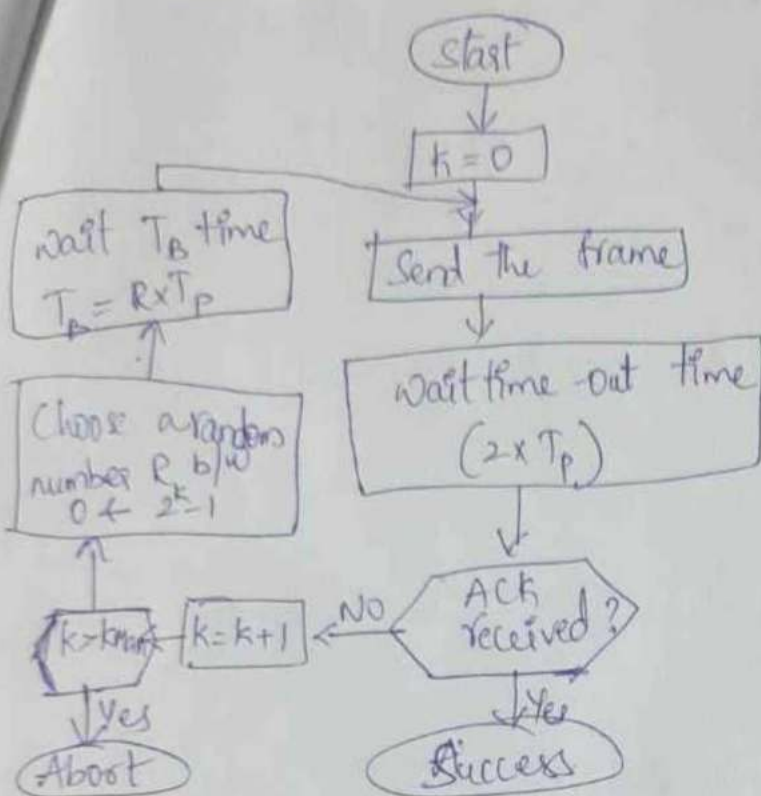 Start
k = 0
Send the frame
Wait time-out time
(2 x Tp)
ACK
received?
Yes
Success
NO
k = k+1
k > kmax
Yes
Abort
Choose a random
number R b/w
0 & 2^k-1
wait TB time
TB = R x Tp